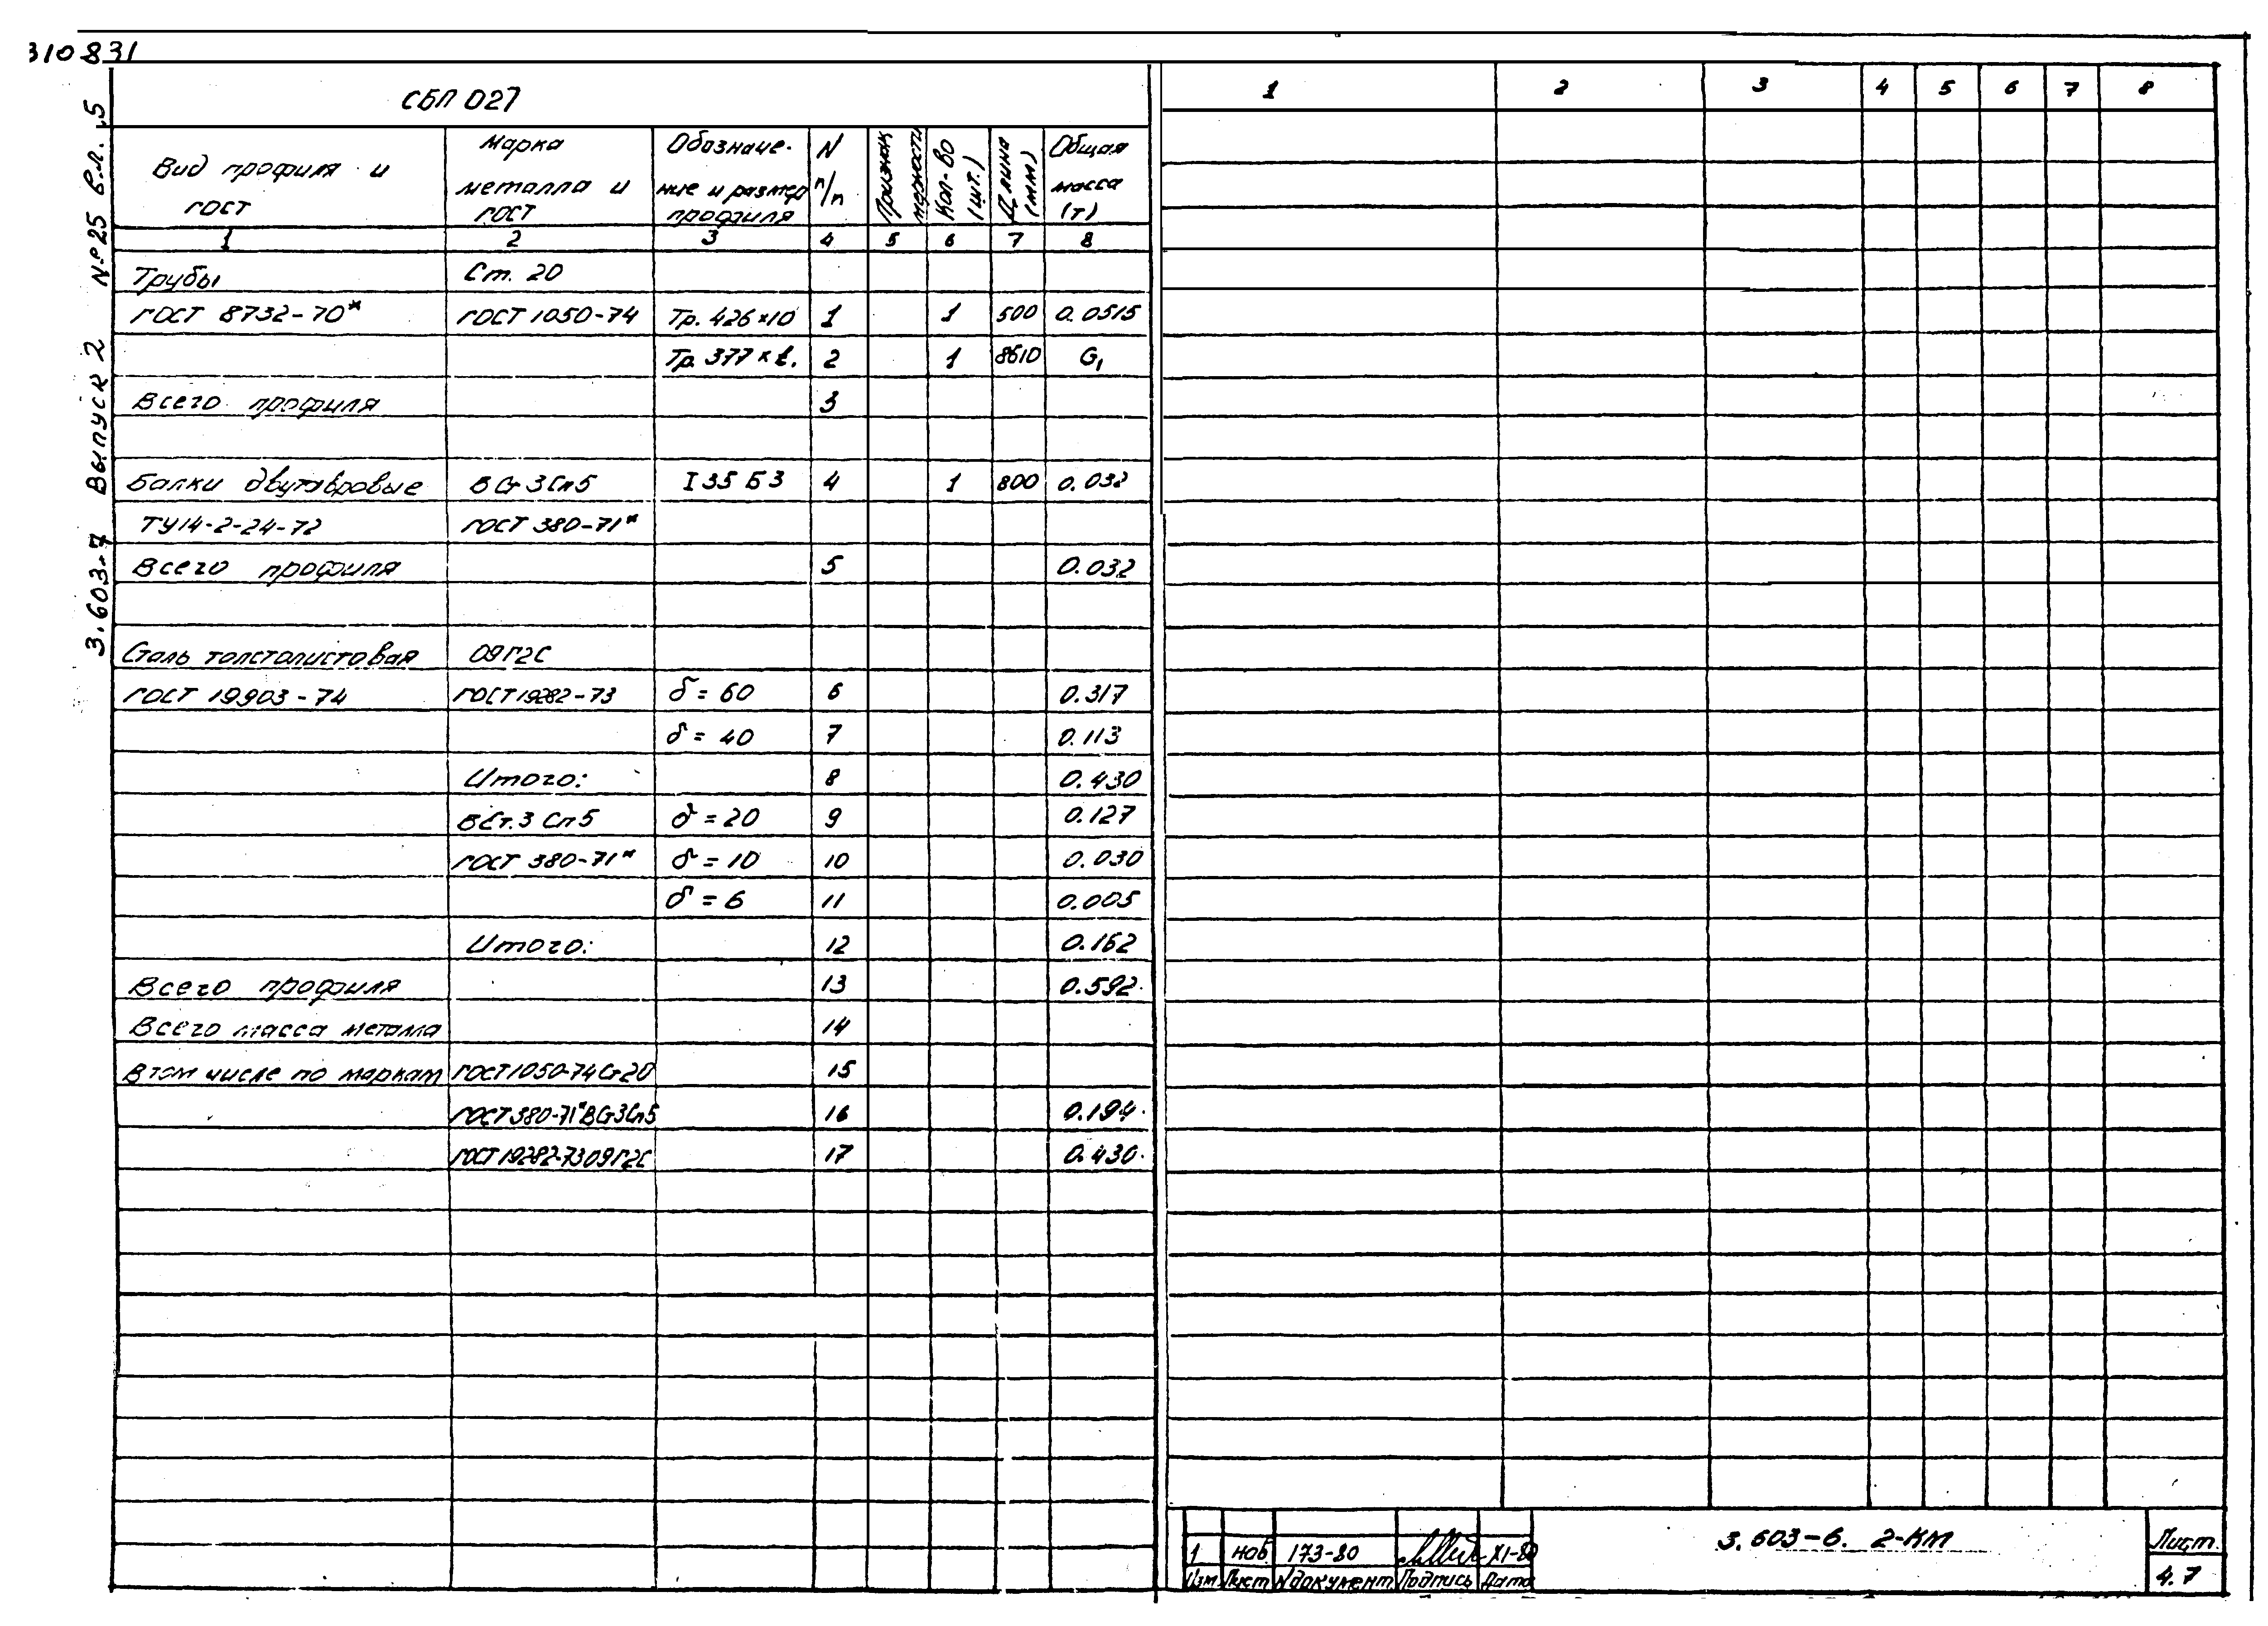 310831
3.603-7 Выпуск 2 №25 В.л. .5
СБП 027
Вид профиля и ГОСТ | Марка металла и ГОСТ | Обозначе- ние и размер профиля | N п/п | Признак мерности | Кол-во (шт.) | Длина (мм) | Общая масса (т)
1 2 3 4 5 6 7 8
Трубы Ст. 20
ГОСТ 8732-70* ГОСТ 1050-74 Тр. 426×10 1 1 500 0.0515
Тр. 377×t. 2 1 8610 G1
Всего профиля 3
Балки двутавровые ВСт3Сп5 I 35 Б3 4 1 800 0.032
ТУ14-2-24-72 ГОСТ 380-71*
Всего профиля 5 0.032
Сталь толстолистовая 09Г2С
ГОСТ 19903-74 ГОСТ 19282-73 δ = 60 6 0.317
δ = 40 7 0.113
Итого: 8 0.430
ВСт.3 Сп5 δ = 20 9 0.127
ГОСТ 380-71* δ = 10 10 0.030
δ = 6 11 0.005
Итого: 12 0.162
Всего профиля 13 0.592
Всего масса металла 14
В том числе по маркам ГОСТ 1050-74 Ст20 15
ГОСТ 380-71* ВСт3Сп5 16 0.194
ГОСТ 19282-73 09Г2С 17 0.430
1 2 3 4 5 6 7 8
1 нов 173-80 XI-80
Изм Лист N документ Подпись Дата
3.603-6. 2-КМ
Лист
4.7